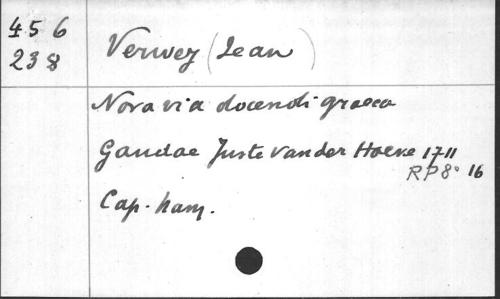 456
238
Verwey (Jean)
Nova via docendi graeca
Gaudae Juste van der Hoeve 1711
RP 8° 16
Cap. ham.